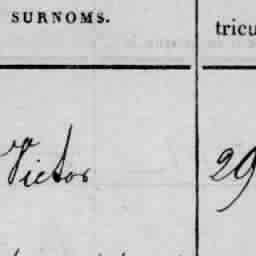 SURNOMS.
tricu
Victor
29